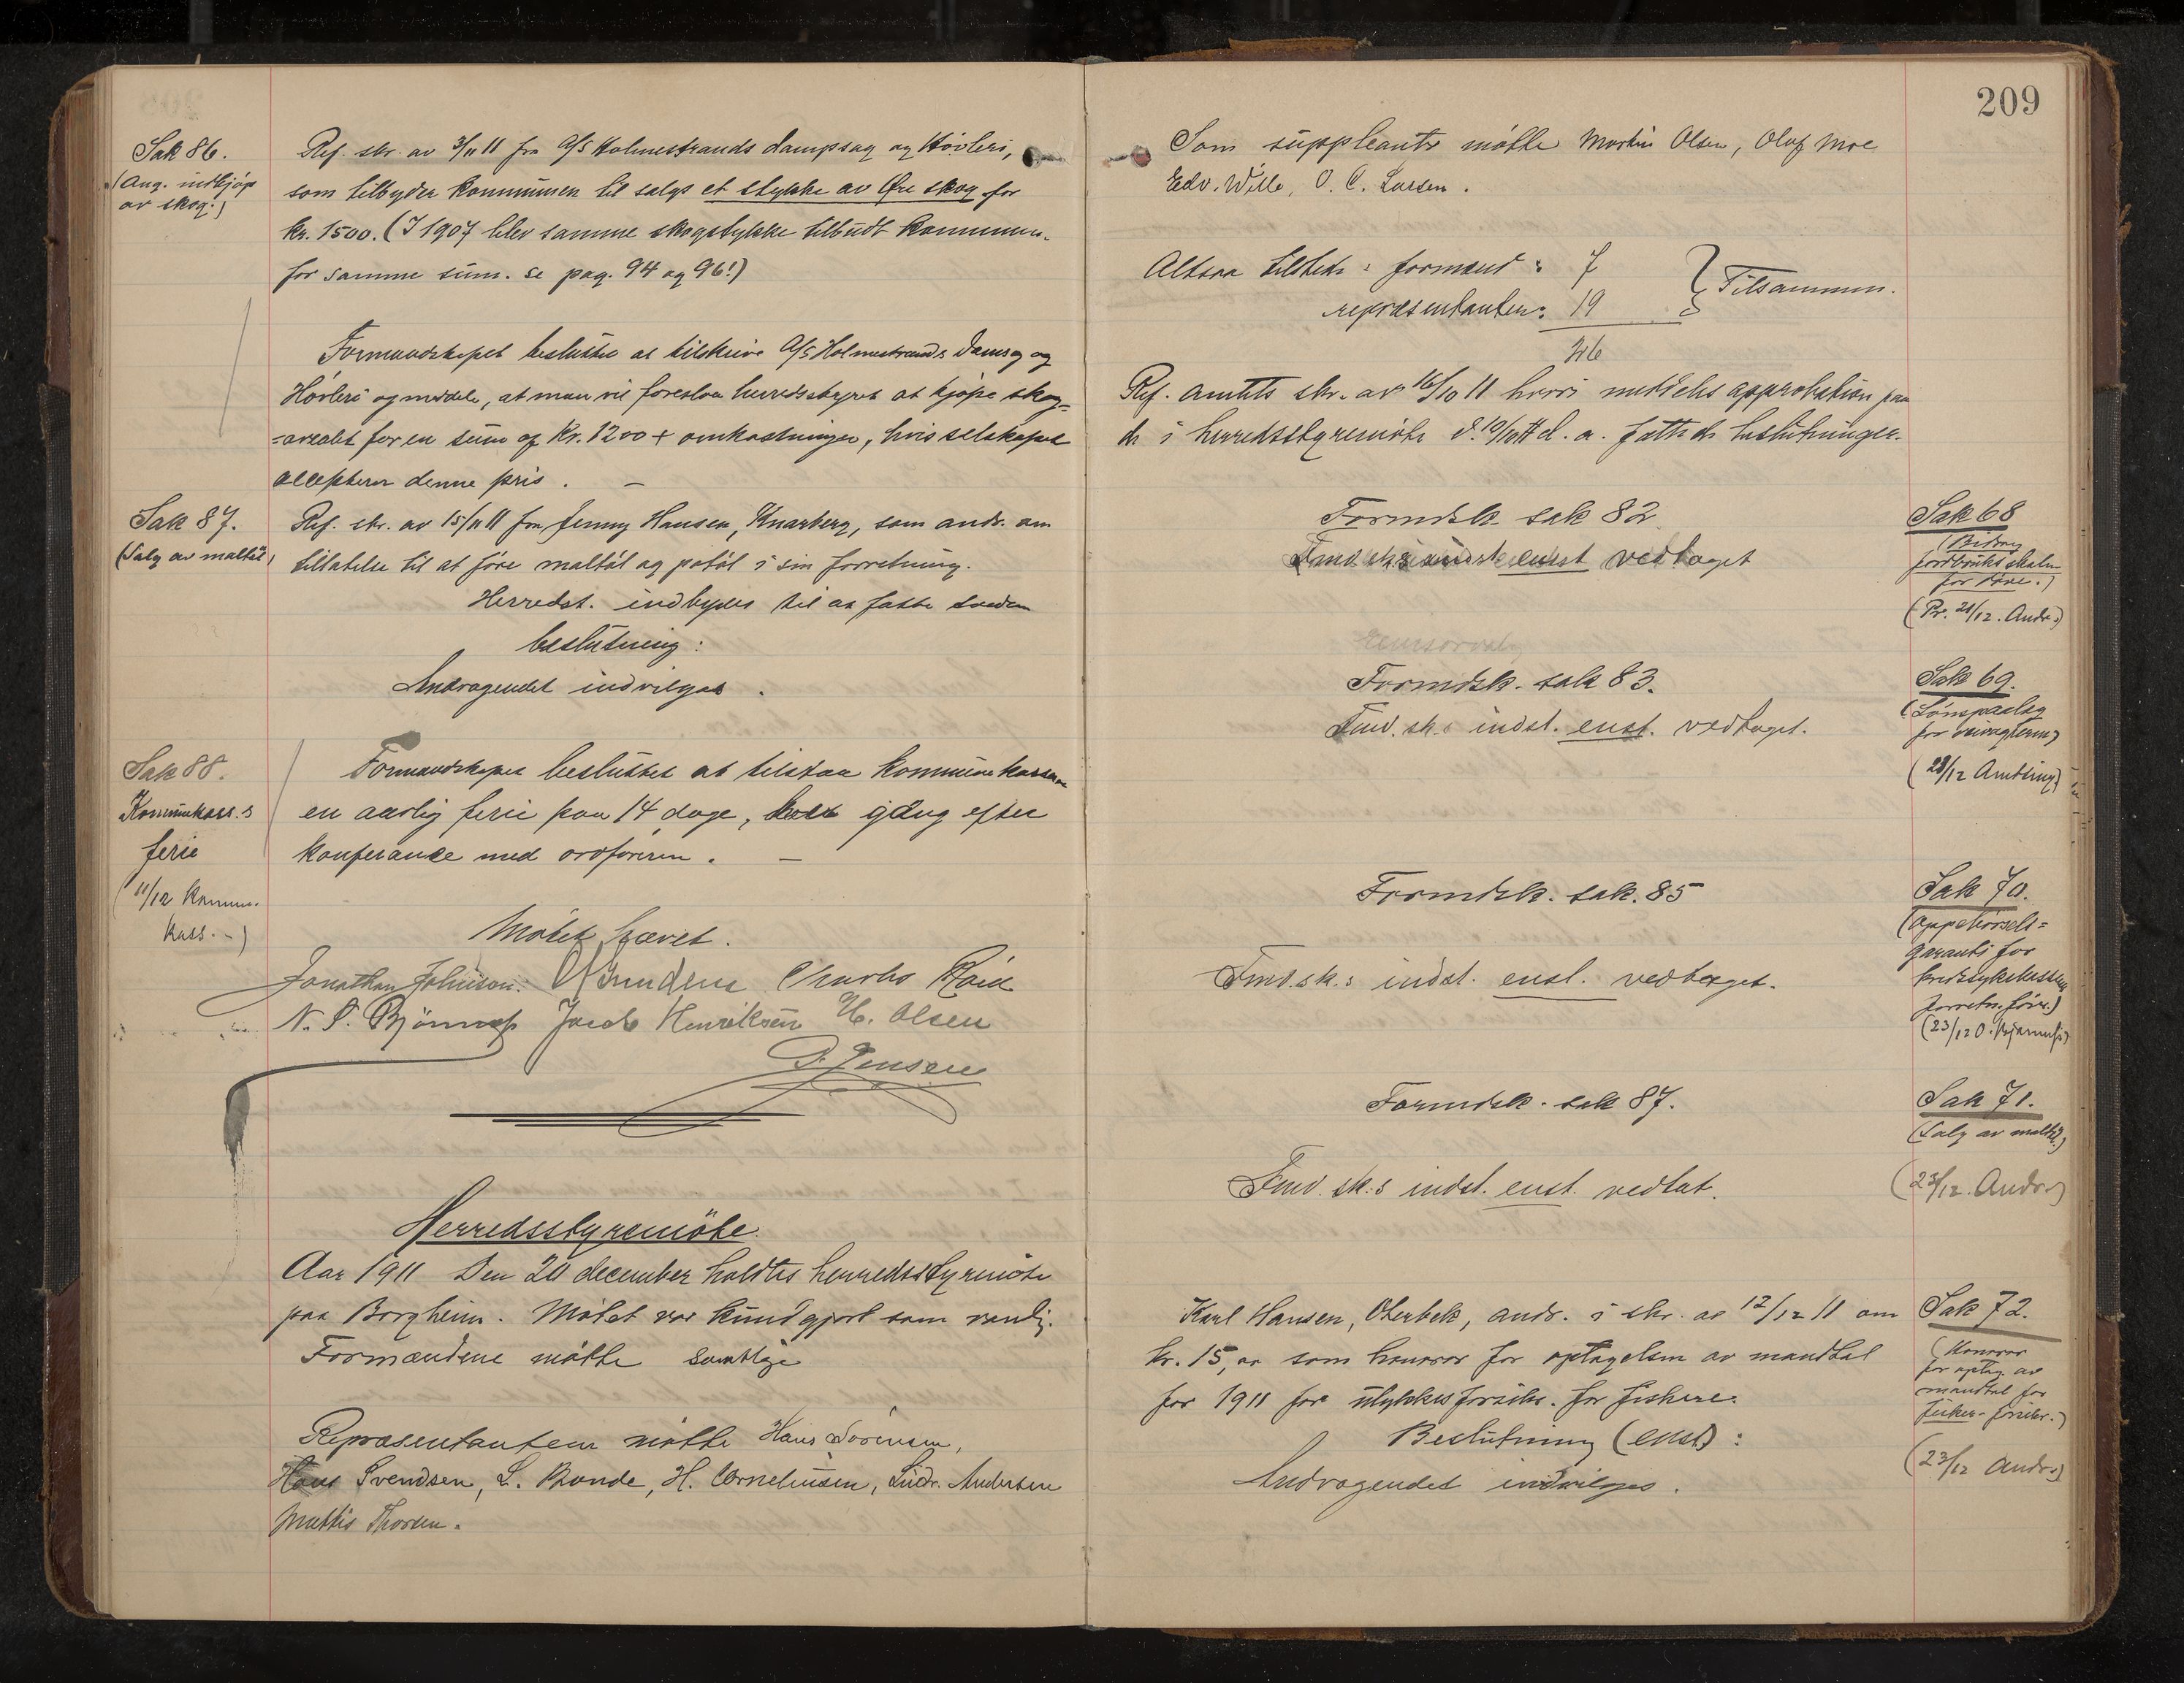 Sak 86.
(Ang. indkjøp
av skog.)
Ref. skr. av 3/11 11 fra A/S Holmestrands Dampsag og Høvleri,
som tilbyder kommunen til salgs et stykke av Øre skog for
kr. 1500. (I 1907 blev samme skogstykke tilbudt kommunen
for samme sum. se pag. 94 og 96!)
Formandskapet besluttet at tilskrive A/S Holmestrands Damsag og
Høvleri og meddele, at man vil foreslaa herredsstyret at kjøpe skog-
-arealet for en sum af Kr. 1200 + omkostninger, hvis selskapet
accepterer denne pris. —
Sak 87.
(Salg av maltøl)
Ref. skr. av 15/11 11 fra Jenny Hansen, Knarberg, som andr. om
tillatelse til at føre maltøl og potøl i sin forretning.
Herredst. indbydes til at fatte saadan
beslutning:
Andragendet indvilges.
Sak 88.
Kommunekass.s
ferie
(11/12 Kommun.
kass. -)
Formandskapet besluttet at tilstaa kommunekasseren
en aarlig ferie paa 14 dage, hver gang efter
konferanse med ordføreren. —
Møtet hævet.
Jonathan Johnson. Charles Roed
N. P. Bjørnnes Jacob Henriksen H. Olsen
P. Jensen
Herredsstyremøte
Aar 1911 Den 20 december holdtes herredsstyremøte
paa Borgheim. Møtet var kundgjort som vanlig.
Formændene møtte samtlige
Repræsentantene møtte Hans Sørensen,
Hans Svendsen, L. Bonde, H. Corneliussen, Ludv. Andersen
Mathis Thorsen.
209
Som suppleanter møtte Martin Olsen, Olaf Moe
Edv. Wille, O. C. Larsen.
Altsaa tilstede: formænd: 7
repræsentanter: 19 } Tilsammen.
26
Ref. amtets skr. av 16/10 11 hvori meddeles approbation paa
de i herredsstyremøte d. 10/10 d. a. fattede beslutninger.
Formdsk. sak 82
Fmd.sk.s indst. enst. vedtaget
Sak 68
(Bidrag
for
(Pr. 21/12. Andr.)
Formdsk. sak 83.
Fmd. sk.s indst. enst. vedtaget.
Sak 69.
(Lønspaalæg
for veivogteren)
(23/12 Amtsing)
Formdsk. sak. 85
Fmd.sk.s indst. enst. vedtaget.
Sak 70.
(Oppebørsels-
garanti for
kredssykekassens
forretn.fører)
(23/12 O. Bjørnnes)
Formdsk. sak 87.
Fmd. sk.s indst. enst. vedtat.
Sak 71.
(Salg av maltøl)
(23/12. Andr.)
Karl Hansen, Oterbek, andr. i skr. av 12/12 11 om
kr. 15,00 som honorar for optagelsen av mandtal
for 1911 for ulykkesforsikr. for fiskere.
Beslutning (enst.):
Andragendet indvilges.
Sak 72.
(Honorar
for optag. av
mandtal for
fisker-forsikr.)
(23/12 Andr.)